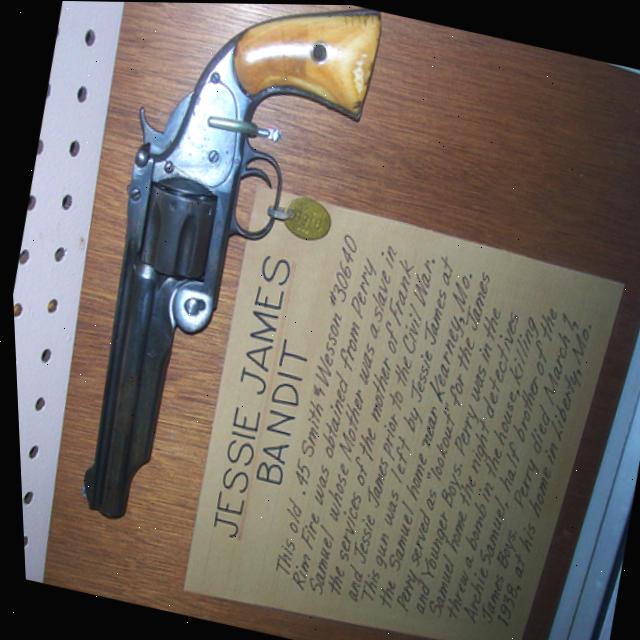 JESSIE JAMES
BANDIT
This old .45 Smith & Wesson #30640
Rim Fire was obtained from Perry
Samuel whose Mother was a slave in
the services of the mother of Frank
and Jessie James prior to the Civil War.
This gun was left by Jessie James at
the Samuel home near Kearney, Mo.
Perry served as "lookout" for the James
and Younger Boys. Perry was in the
Samuel home the night detectives
threw a bomb in the house, killing
Archie Samuel, half brother of the
James Boys. Perry died March 2
1938 at his home in Liberty, Mo.